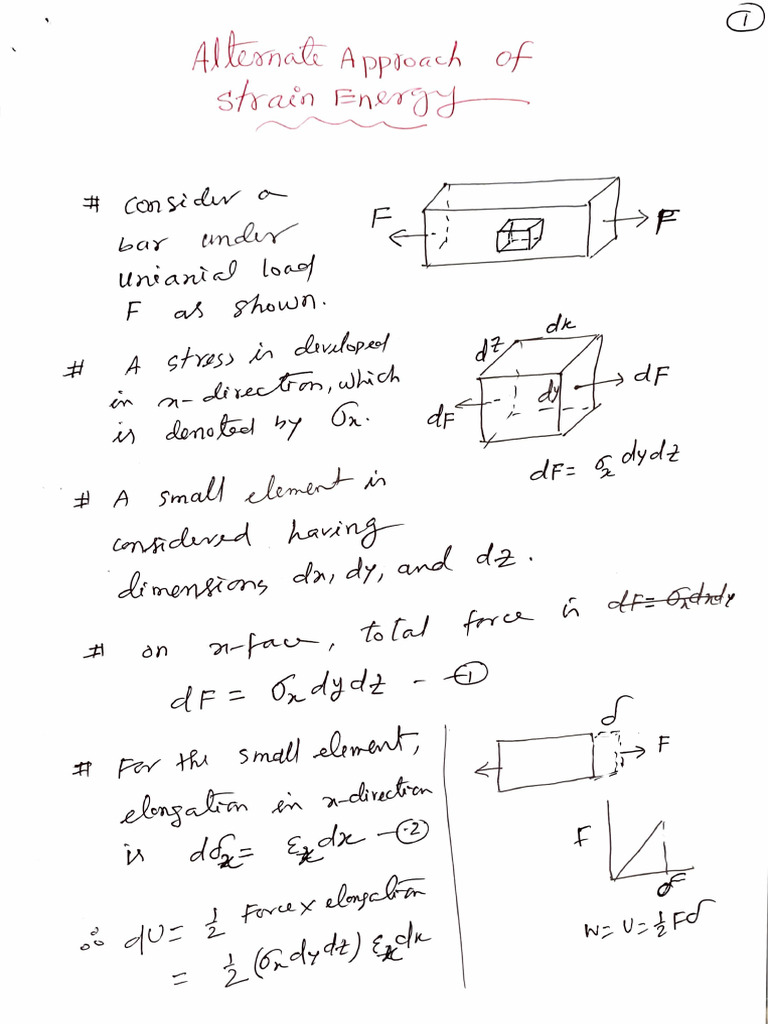 ①
Alternate Approach of
Strain Energy
# consider a
bar under
unianial load
F as shown.
F
F
# A stress is developed
in x-direction, which
is denoted by σx.
dz
dx
dy
dF
dF
dF = σx dydz
# A small element is
considered having
dimensions dx, dy, and dz.
# on x-face, total force is dF = σx dxdy
dF = σx dydz - ①
# For the small element,
elongation in x-direction
is dδx = εx dx - ②
∴ dU = 1/2 Force x elongation
= 1/2 (σx dydz) εx dx
δ
F
F
δ
W = U = 1/2 Fδ